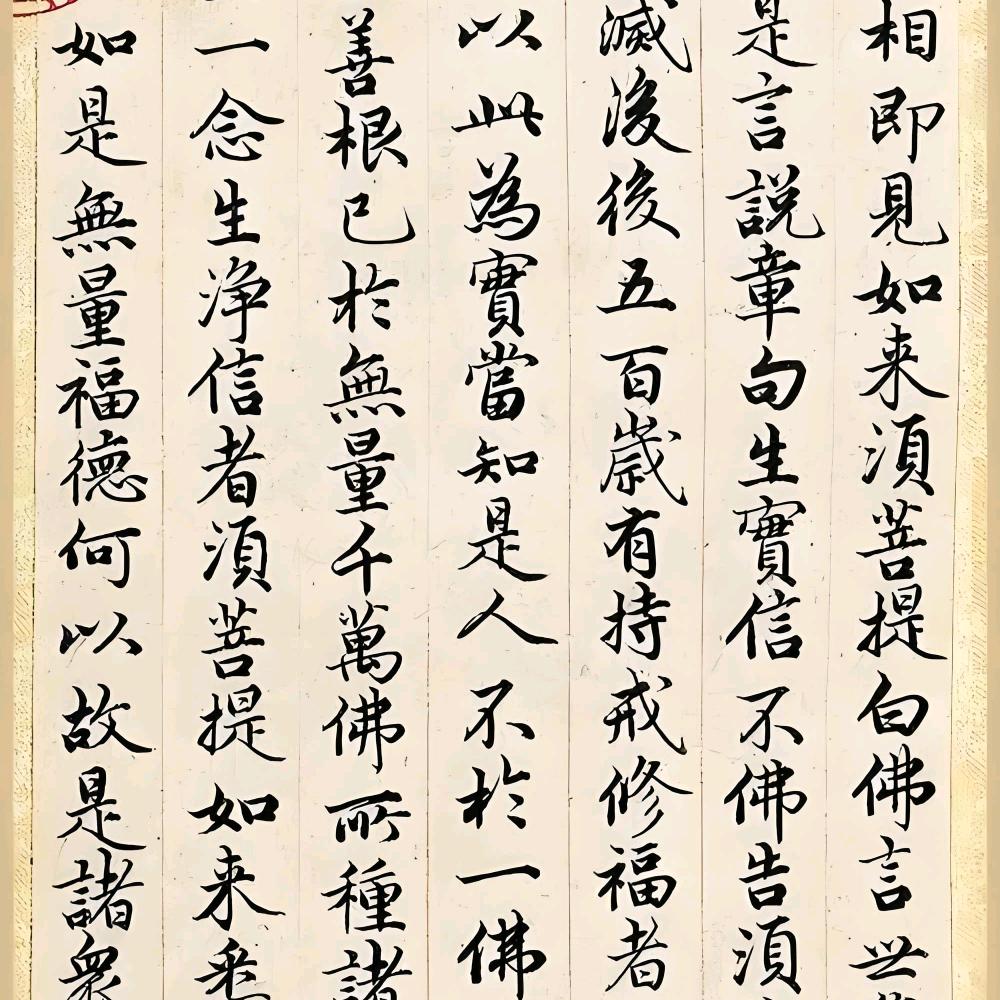 相即見如来須菩提白佛言世
是言說章句生實信不佛告須
滅後後五百歲有持戒修福者
以此為實當知是人不於一佛
善根已於無量千萬佛所種諸
一念生淨信者須菩提如来悉
如是無量福德何以故是諸衆